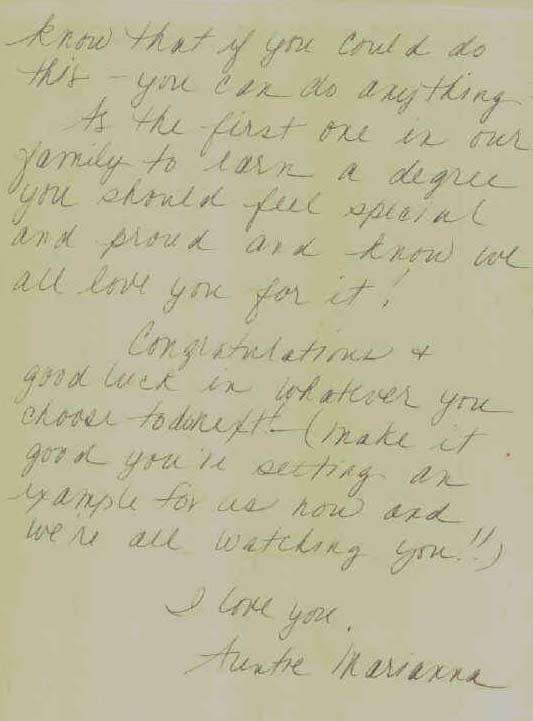 know that if you could do
this - you can do anything -
As the first one in our
family to earn a degree
you should feel special
and proud and know we
all love you for it!
Congratulations +
good luck in whatever you
choose to do next! - (make it
good you're setting an
example for us now and
we're all watching you!!)
I love you,
Auntie Marianna